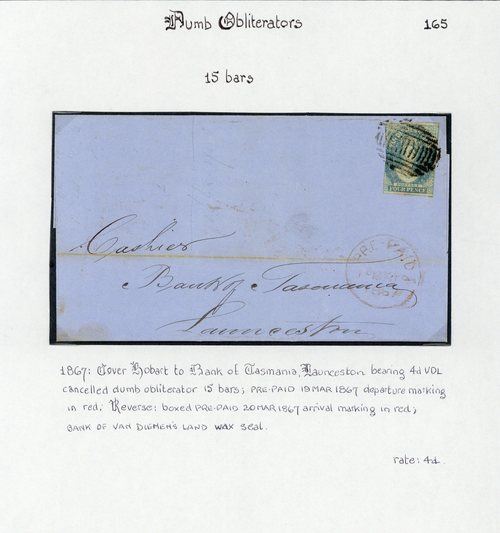 Dumb Obliterators
165
15 bars
FOUR PENCE
PRE-PAID
Cashier
Bank of Tasmania
Launceston
1867: Cover Hobart to Bank of Tasmania, Launceston bearing 4d VDL
cancelled dumb obliterator 15 bars; PRE-PAID 19 MAR 1867 departure marking
in red. Reverse: boxed PRE-PAID 20 MAR 1867 arrival marking in red;
BANK OF VAN DIEMEN'S LAND WAX seal.
rate: 4d.